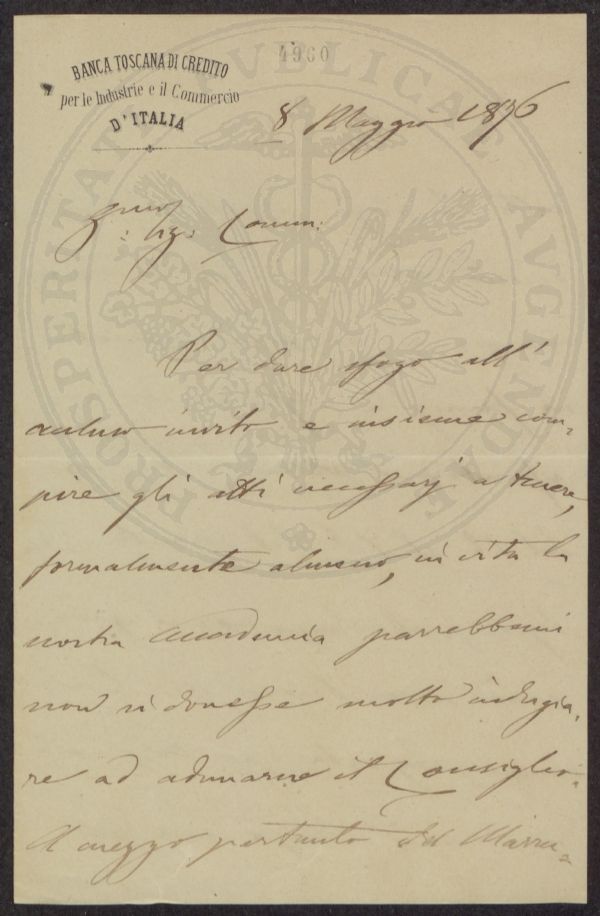 4960
BANCA TOSCANA DI CREDITO
per le Industrie e il Commercio
D'ITALIA
PROSPERITATI PUBLICAE AVGENDAE
8 Maggio 1876
Sig: Comm:
Per dare sfogo all'
accluso invito e insieme com-
pire gli atti necessarj a tenere,
formalmente almeno, in vita la
nostra Accademia parrebbemi
non si dovesse molto indugia-
re ad adunarne il Consiglio.
A mezzo pertanto del